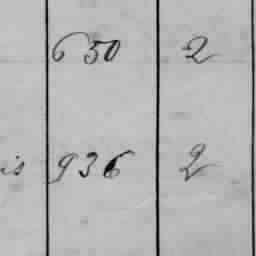 650 2
is 936 2